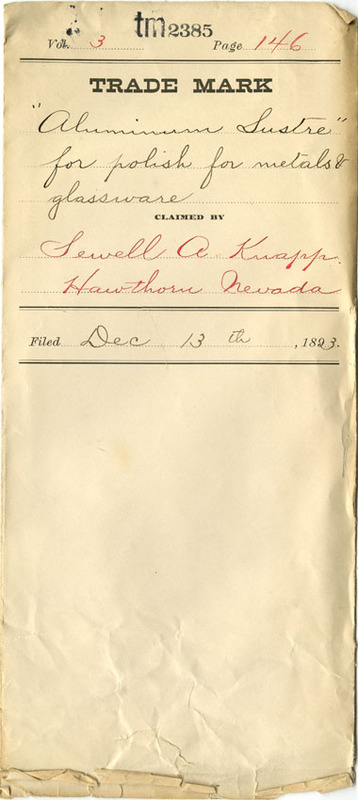 tm2385
Vol. 3 Page 146
TRADE MARK
"Aluminum Lustre"
for polish for metals &
glassware
CLAIMED BY
Sewell A. Knapp.
Hawthorn Nevada
Filed Dec 13th, 1893.